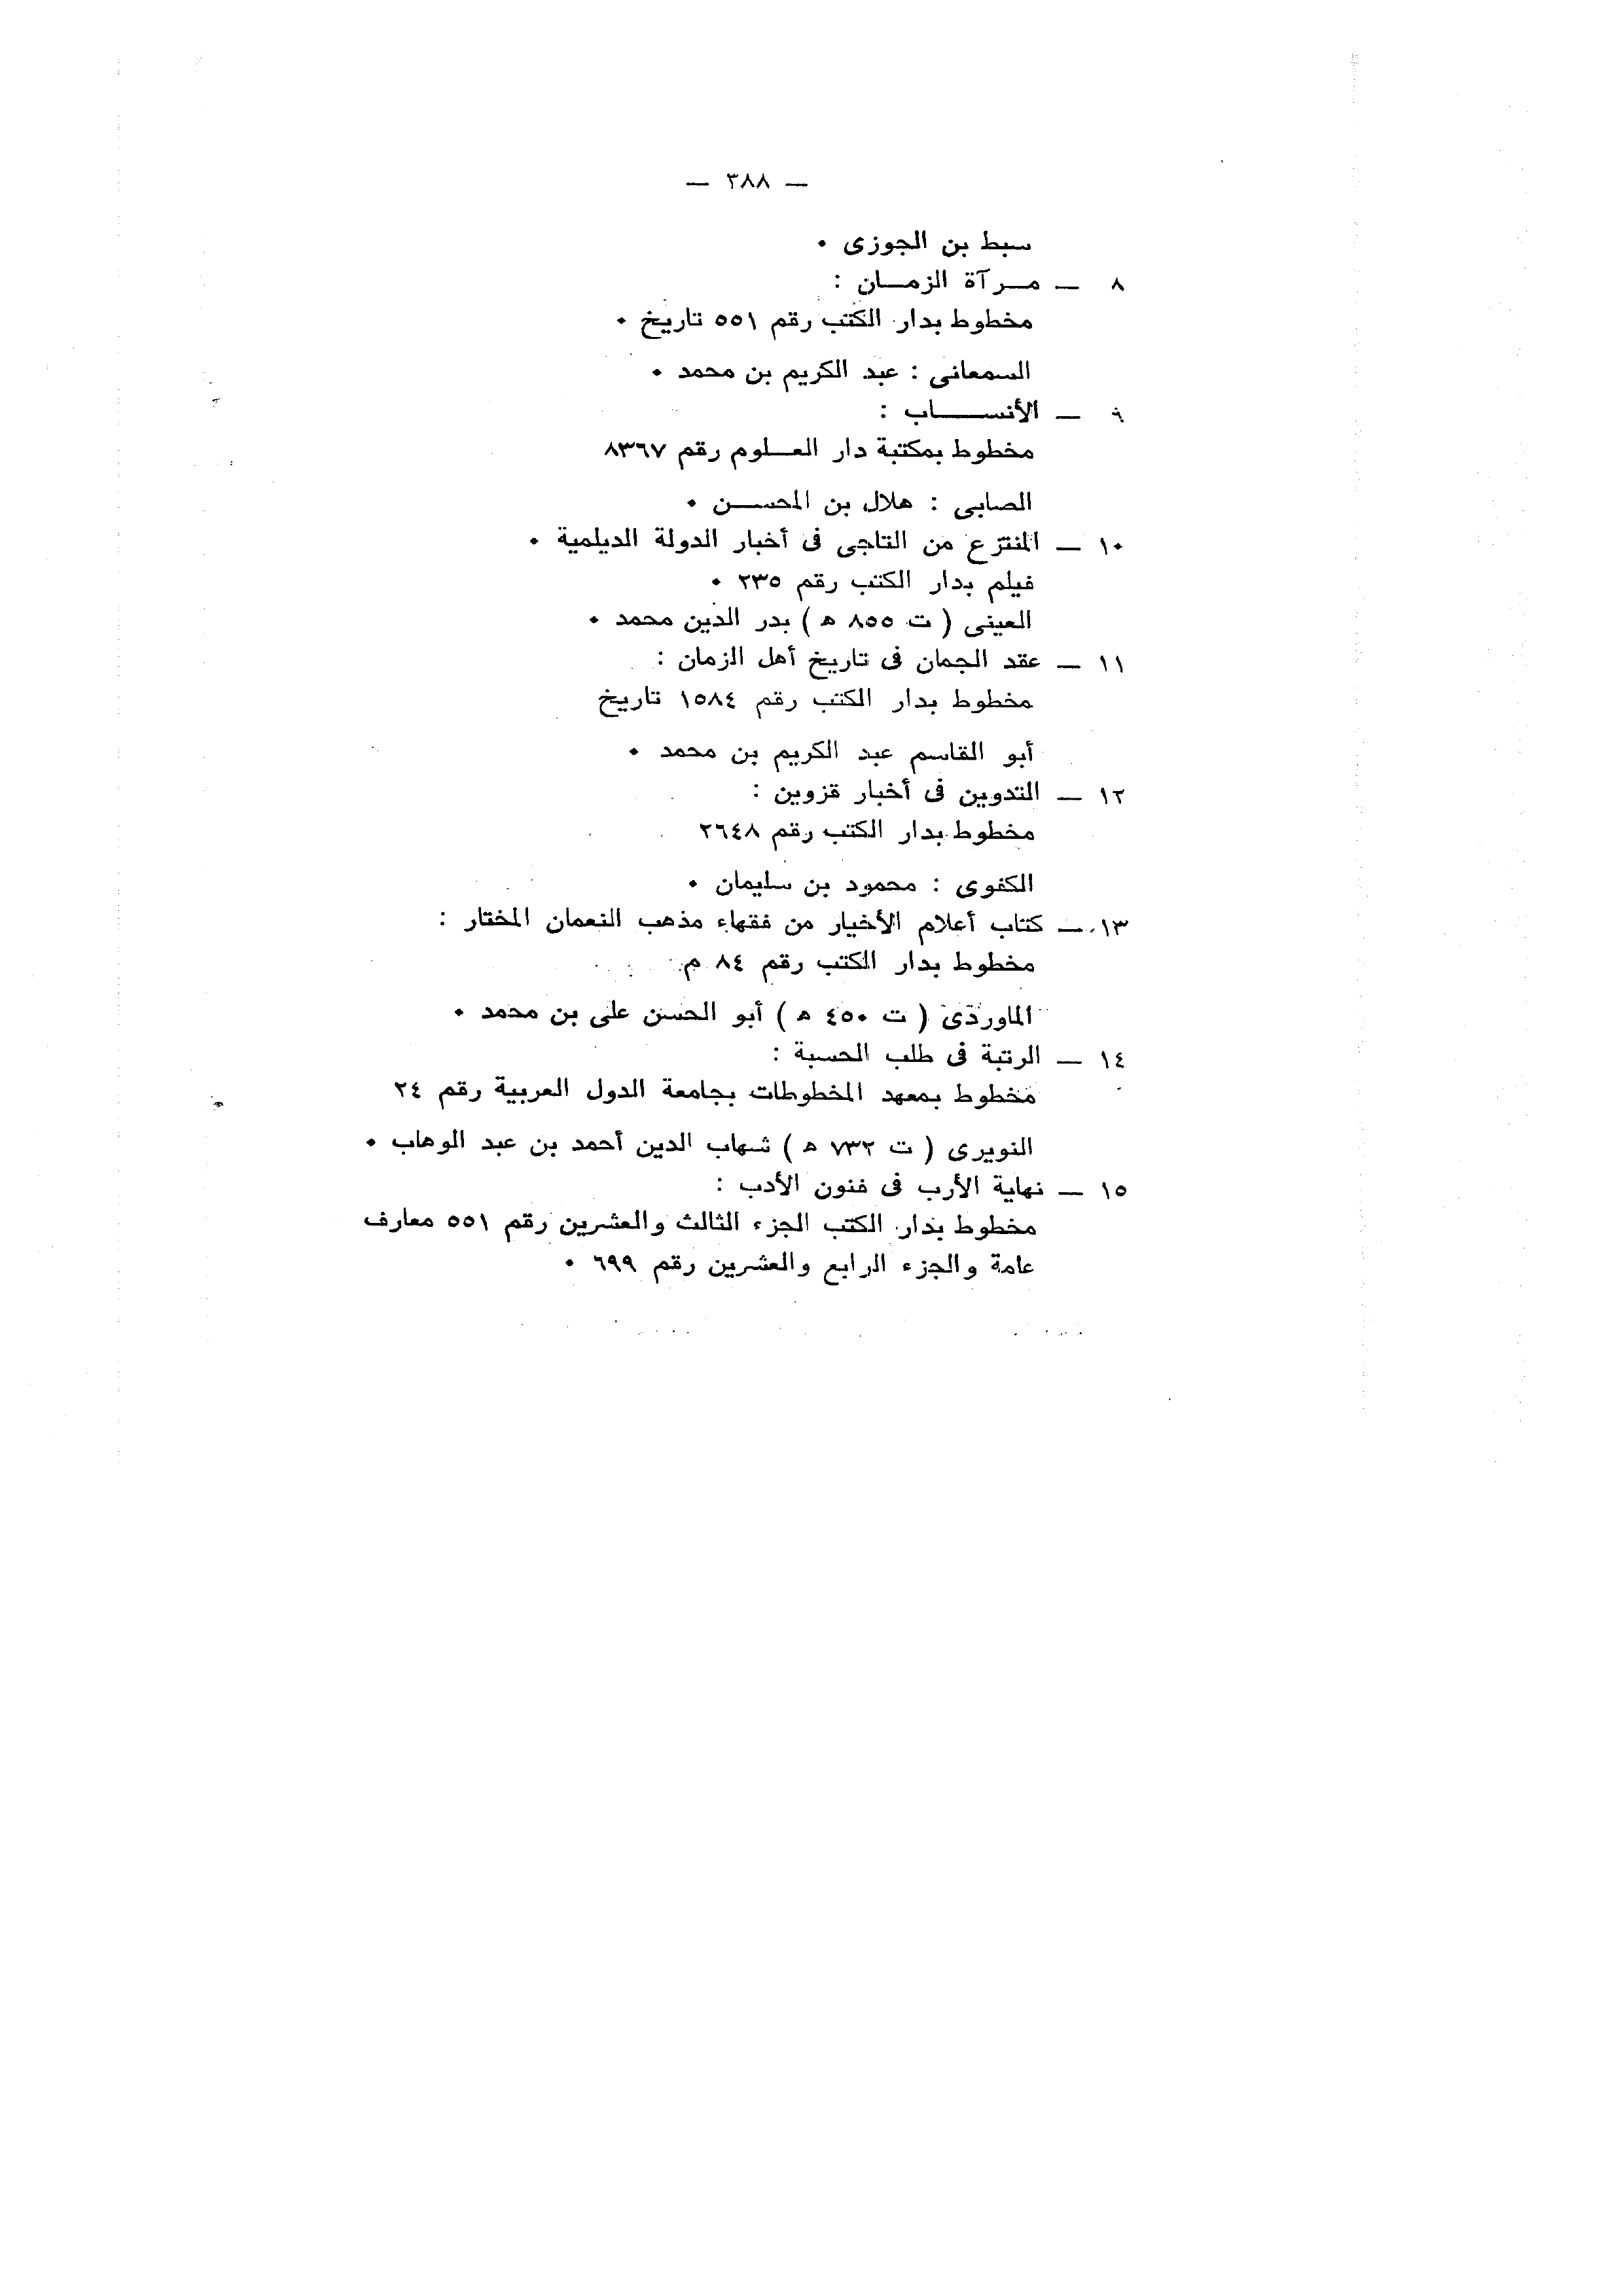 — ٣٨٨ —
سبط بن الجوزى ٠
٨ — مرآة الزمان :
مخطوط بدار الكتب رقم ٥٥١ تاريخ ٠
السمعانى : عبد الكريم بن محمد ٠
٩ — الأنساب :
مخطوط بمكتبة دار العلوم رقم ٨٣٦٧
الصابى : هلال بن المحسن ٠
١٠ — المنتزع من التاجى فى أخبار الدولة الديلمية ٠
فيلم بدار الكتب رقم ٢٣٥ ٠
العينى ( ت ٨٥٥ ه ) بدر الدين محمد ٠
١١ — عقد الجمان فى تاريخ أهل الزمان :
مخطوط بدار الكتب رقم ١٥٨٤ تاريخ
أبو القاسم عبد الكريم بن محمد ٠
١٢ — التدوين فى أخبار قزوين :
مخطوط بدار الكتب رقم ٢٦٤٨
الكفوى : محمود بن سليمان ٠
١٣ — كتاب أعلام الأخيار من فقهاء مذهب النعمان المختار :
مخطوط بدار الكتب رقم ٨٤ م
الماوردى ( ت ٤٥٠ ه ) أبو الحسن على بن محمد ٠
١٤ — الرتبة فى طلب الحسبة :
مخطوط بمعهد المخطوطات بجامعة الدول العربية رقم ٢٤
النويرى ( ت ٧٣٢ ه ) شهاب الدين أحمد بن عبد الوهاب ٠
١٥ — نهاية الأرب فى فنون الأدب :
مخطوط بدار الكتب الجزء الثالث والعشرين رقم ٥٥١ معارف
عامة والجزء الرابع والعشرين رقم ٦٩٩ ٠